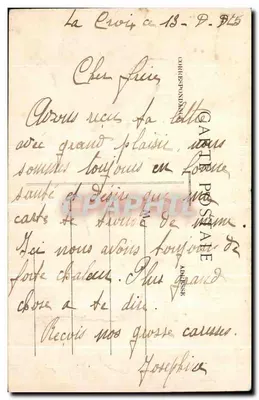 La Croix a 13-
Cher frère
Avons reçu ta lettre
avec grand plaisir, nous
sommes toujours en bonne
santé et désire que ma
carte te trouve de même
Ici nous avons toujours de
forte chaleur. Plus grand
chose a te dire.
Reçois nos grosse caresses.
Joséphine
CARTE POSTALE
CORRESPONDANCE
ADRESSE
CPAPHIL